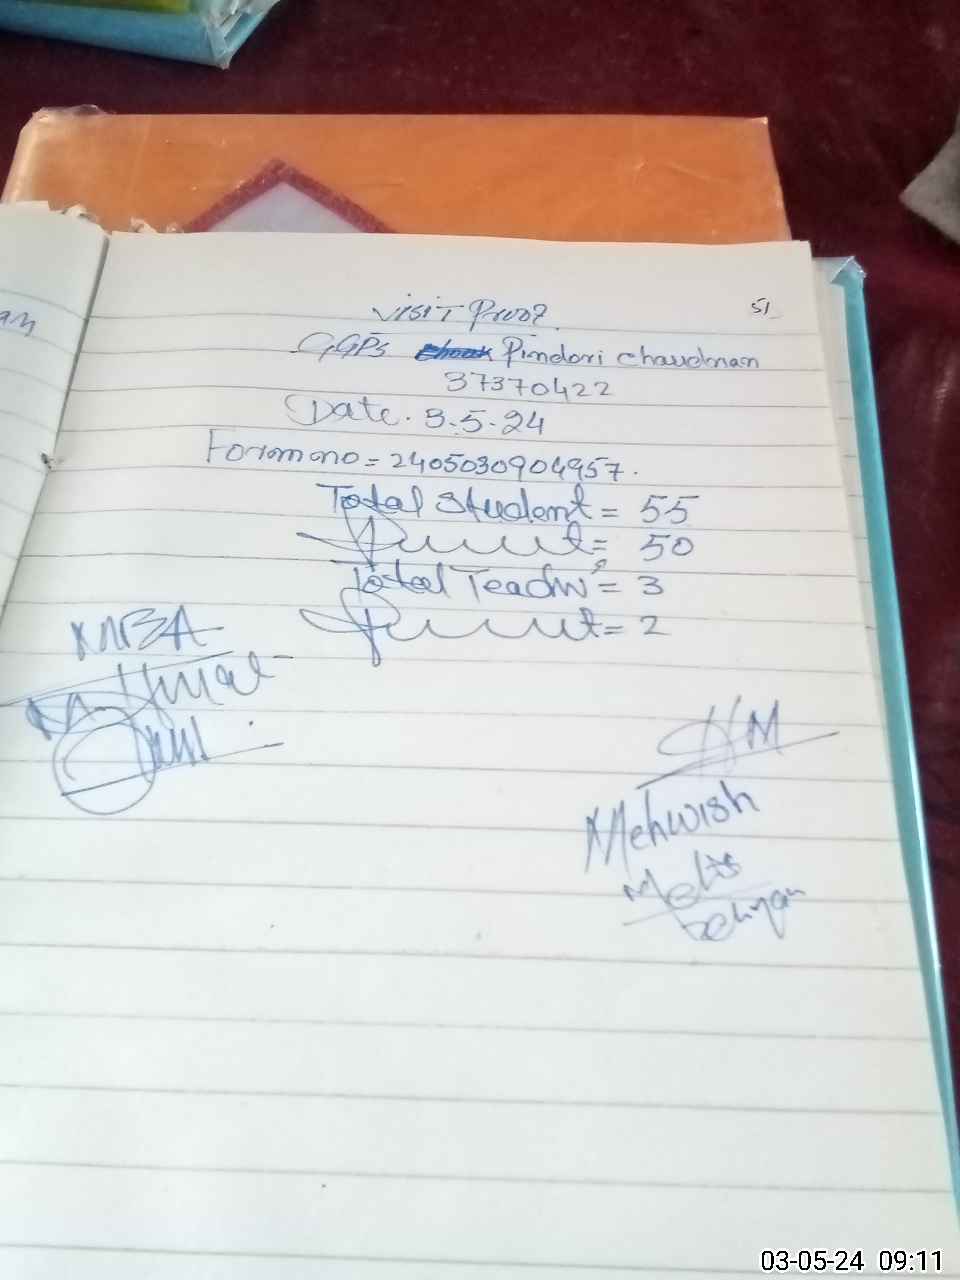 51
Visit Proof
GGPS Pindori Chaudhrian
37370422
Date. 3.5.24
Form no = 2405030904957.
Total Student = 55
Present = 50
Total Teacher's = 3
Present = 2
HM
Mehwish
03-05-24 09:11